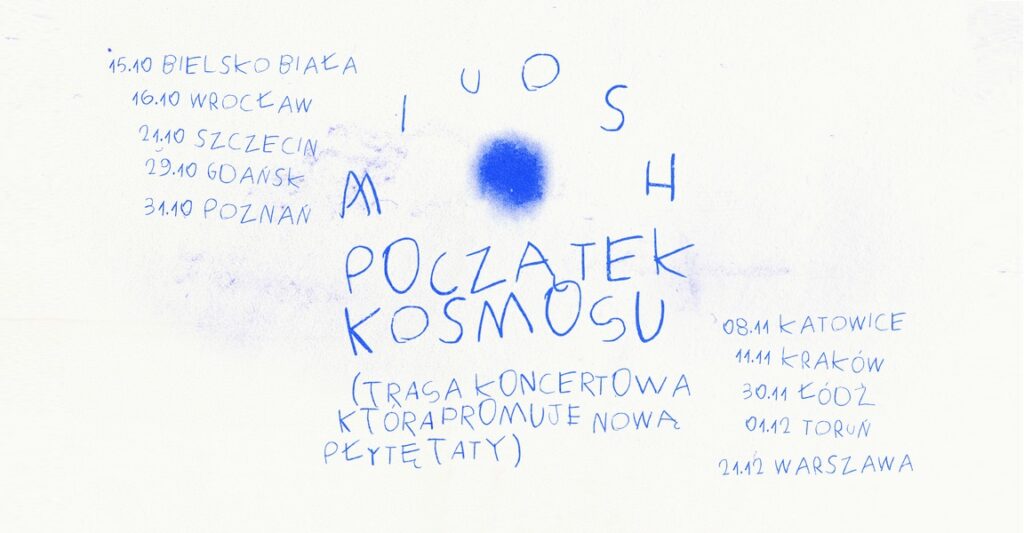 15.10 BIELSKO BIAŁA
16.10 WROCŁAW
21.10 SZCZECIN
29.10 GDAŃSK
31.10 POZNAŃ
MIUOSH
POCZĄTEK
KOSMOSU
(TRASA KONCERTOWA
KTÓRA PROMUJE NOWĄ
PŁYTĘ TATY)
08.11 KATOWICE
11.11 KRAKÓW
30.11 ŁÓDŹ
01.12 TORUŃ
21.12 WARSZAWA